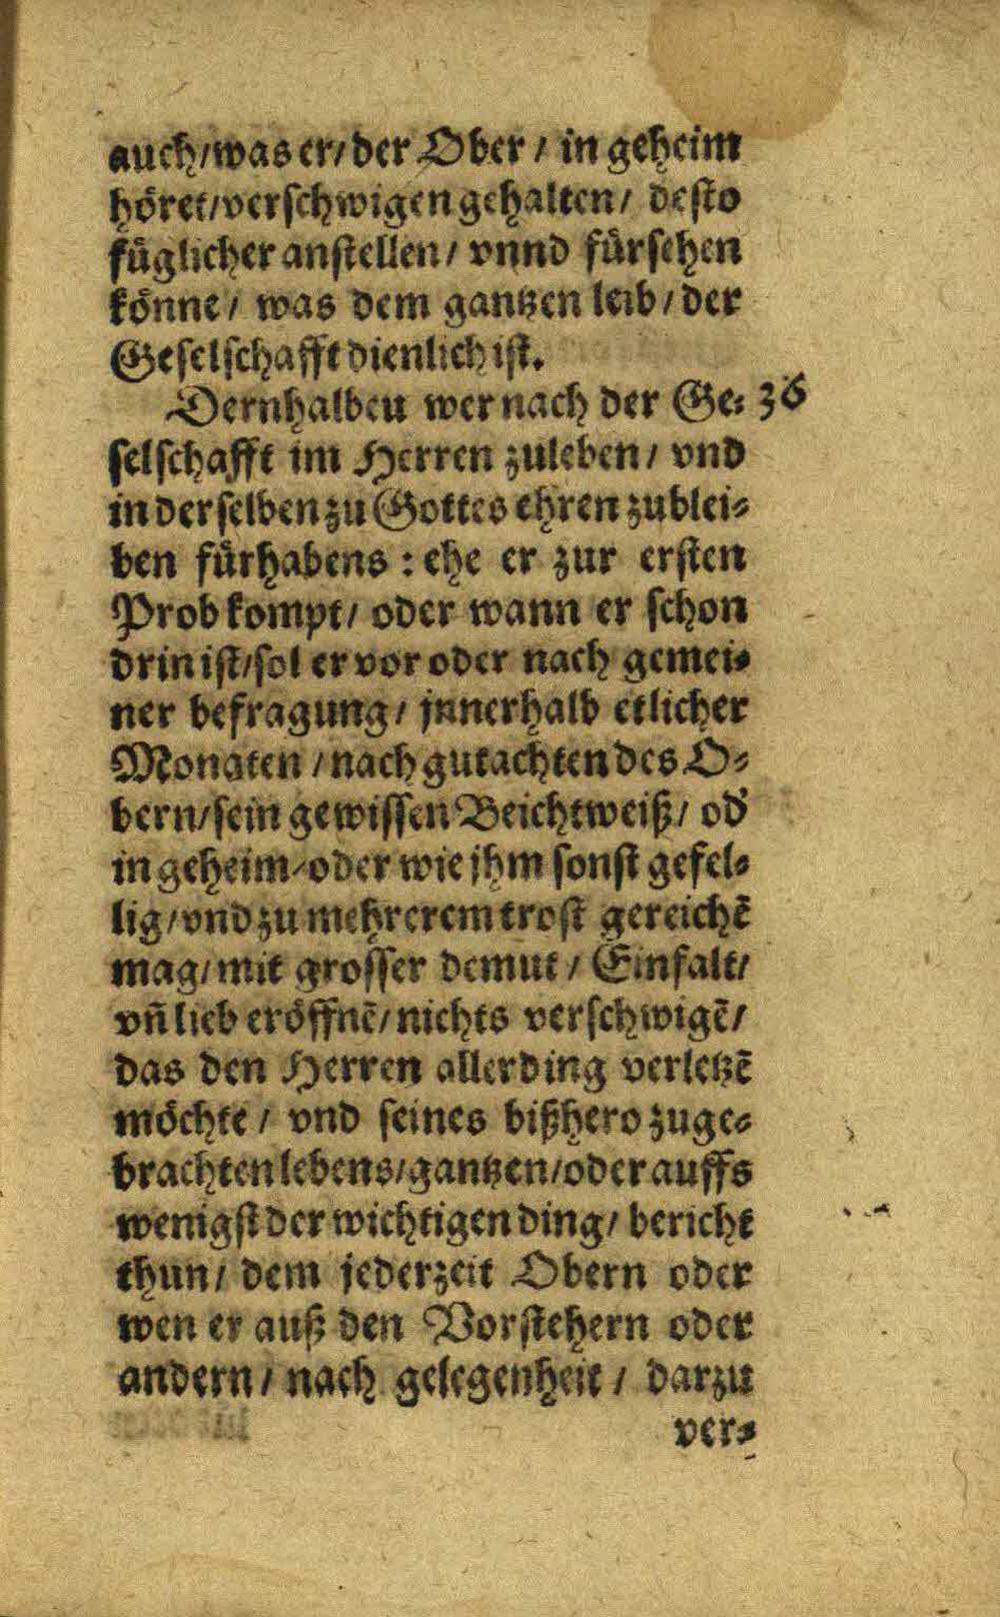 auch/was er/der Ober / in geheim
höret/verschwigen gehalten/ desto
füglicher anstellen/ vnnd fürsehen
könne / was dem gantzen leib / der
Geselschafft dienlich ist.
Dernhalben wer nach der Ge- 36
selschafft im Herren zuleben/ vnd
in derselben zu Gottes ehren zublei-
ben fürhabens : ehe er zur ersten
Prob kompt/ oder wann er schon
drin ist/sol er vor oder nach gemei-
ner befragung/ jnnerhalb etlicher
Monaten / nach gutachten des O-
bern/sein gewissen Beichtweiß/ od'
in geheim/oder wie jhm sonst gefel-
lig/vnd zu mehrerem trost gereichẽ
mag/mit grosser demut / Einfalt/
vñ lieb eröffnẽ/nichts verschwigẽ/
das den Herren allerding verletzẽ
möchte / vnd seines bißhero zuge-
brachten lebens/gantzen/oder auffs
wenigst der wichtigen ding/ bericht
thun/ dem jederzeit Obern oder
wen er auß den Vorstehern oder
andern / nach gelegenheit / darzu
ver-